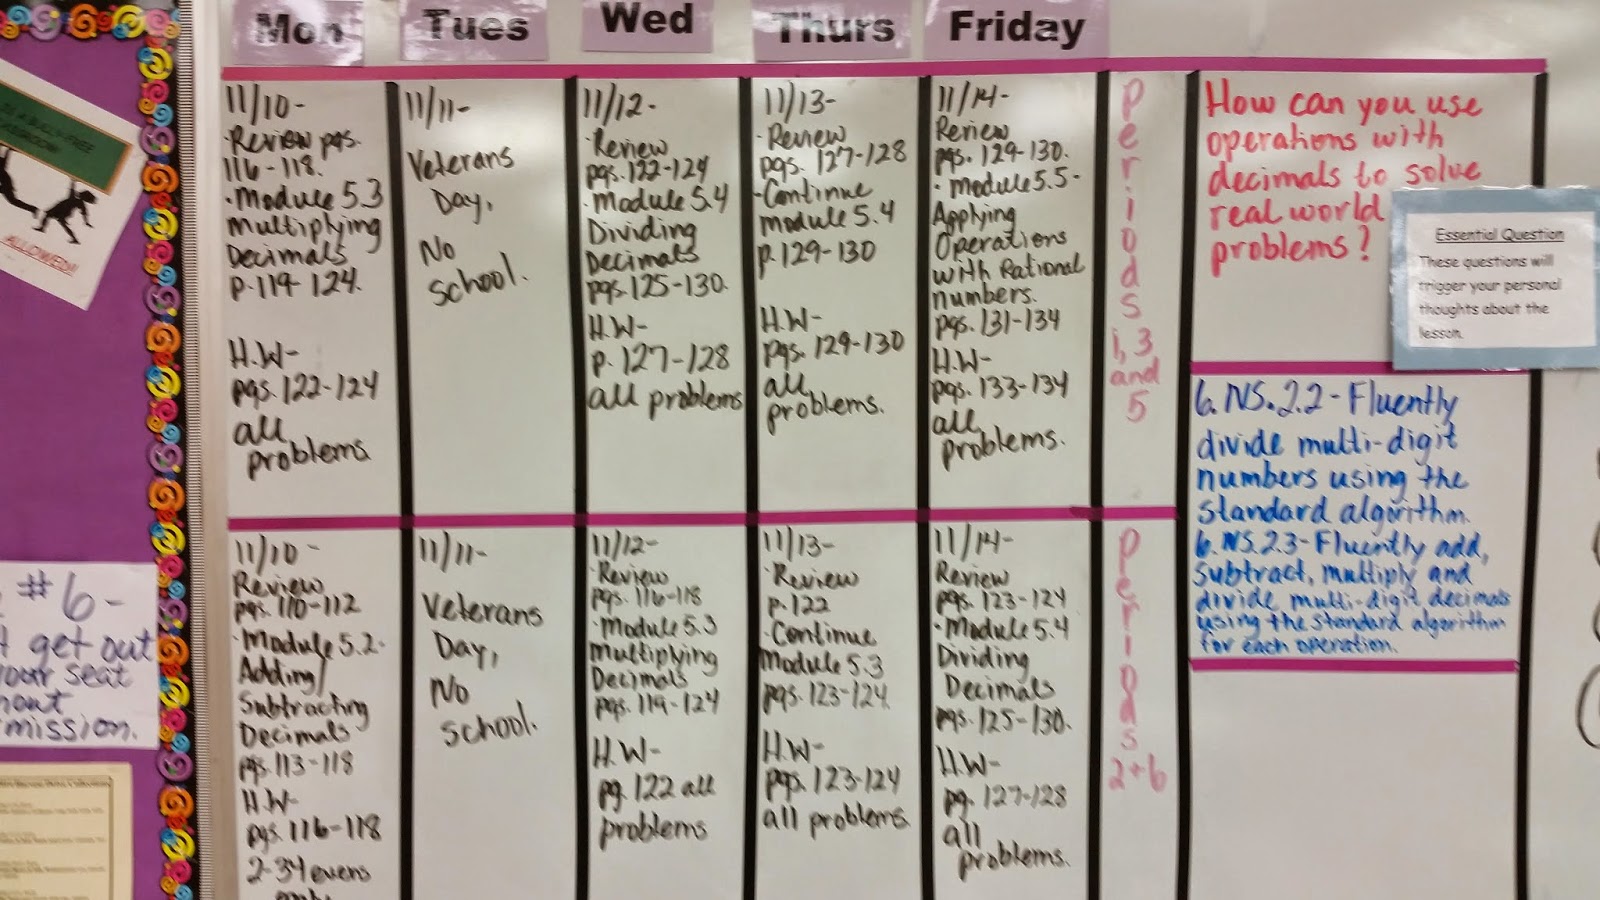 Mon Tues Wed Thurs Friday
11/10-
·Review pgs.
116-118.
·Module 5.3
Multiplying
Decimals
p.119-124.
H.W-
pgs.122-124
all
problems.
11/11-
Veterans
Day,
No
school.
11/12-
·Review
pgs.122-124
·Module 5.4
Dividing
Decimals
pgs.125-130.
H.W-
p. 127-128
all problems
11/13-
·Review
pgs. 127-128
·Continue
module 5.4
p.129-130
H.W-
pgs. 129-130
all
problems.
11/14-
Review
pgs. 129-130.
·Module 5.5-
Applying
Operations
with Rational
numbers.
pgs. 131-134
H.W-
pgs. 133-134
all
problems.
Periods
1,3
and
5
How can you use
operations with
decimals to solve
real world
problems?
Essential Question
These questions will
trigger your personal
thoughts about the
lesson.
6.NS.2.2-Fluently
divide multi-digit
numbers using the
standard algorithm.
6.NS.2.3-Fluently add,
subtract, multiply and
divide multi-digit decimals
using the standard algorithm
for each operation.
11/10-
Review
pgs.110-112
·Module 5.2-
Adding/
Subtracting
Decimals
pgs.113-118
H.W-
pgs.116-118
2-34 evens
only
11/11-
Veterans
Day,
No
school.
11/12-
·Review
pgs.116-118
·Module 5.3
Multiplying
Decimals
pgs.119-124
H.W-
pg. 122 all
problems
11/13-
·Review
p.122
·Continue
Module 5.3
pgs.123-124.
H.W-
pgs. 123-124
all problems.
11/14-
Review
pgs.123-124
·Module 5.4
Dividing
Decimals
pgs.125-130.
H.W-
pg. 127-128
all
problems.
Periods
2+6
ALLOWED!!
#6-
get out
seat
mission.